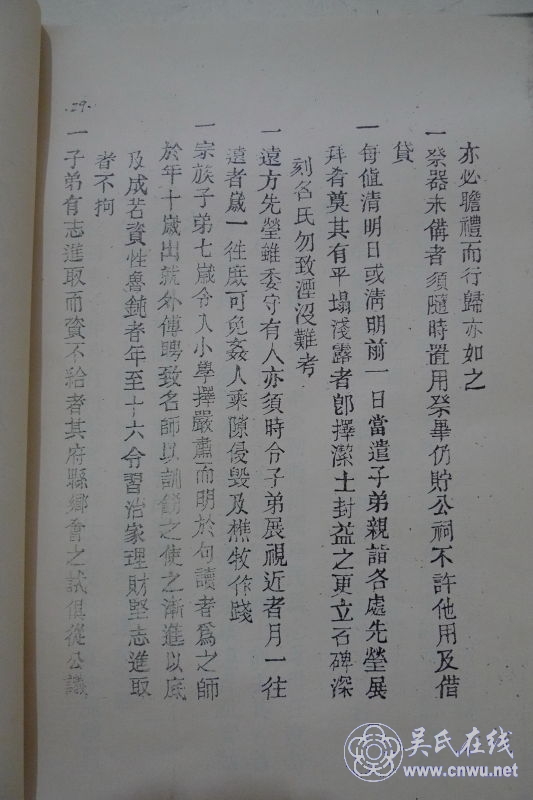 亦必瞻禮而行歸亦如之
一祭器未備者須隨時置用祭畢仍貯公祠不許他用及借
貸
一每值清明日或清明前一日當遣子弟親詣各處先塋展
拜肴奠其有平塌淺露者卽擇潔土封益之更立石碑深
刻名氏勿致湮沒難考
一遠方先塋雖委守有人亦須時令子弟展視近者月一往
遠者歲一往庶可免姦人乘隙侵毀及樵牧作踐
一宗族子弟七歲令入小學擇嚴肅而明於句讀者爲之師
於年十歲出就外傅聘致名師以訓飭之使之漸進以底
及成若資性魯鈍者年至十六令習治家理財堅志進取
者不拘
一子弟有志進取而資不給者其府縣鄉會之試俱從公議
.29.
吴氏在线
www.cnwu.net